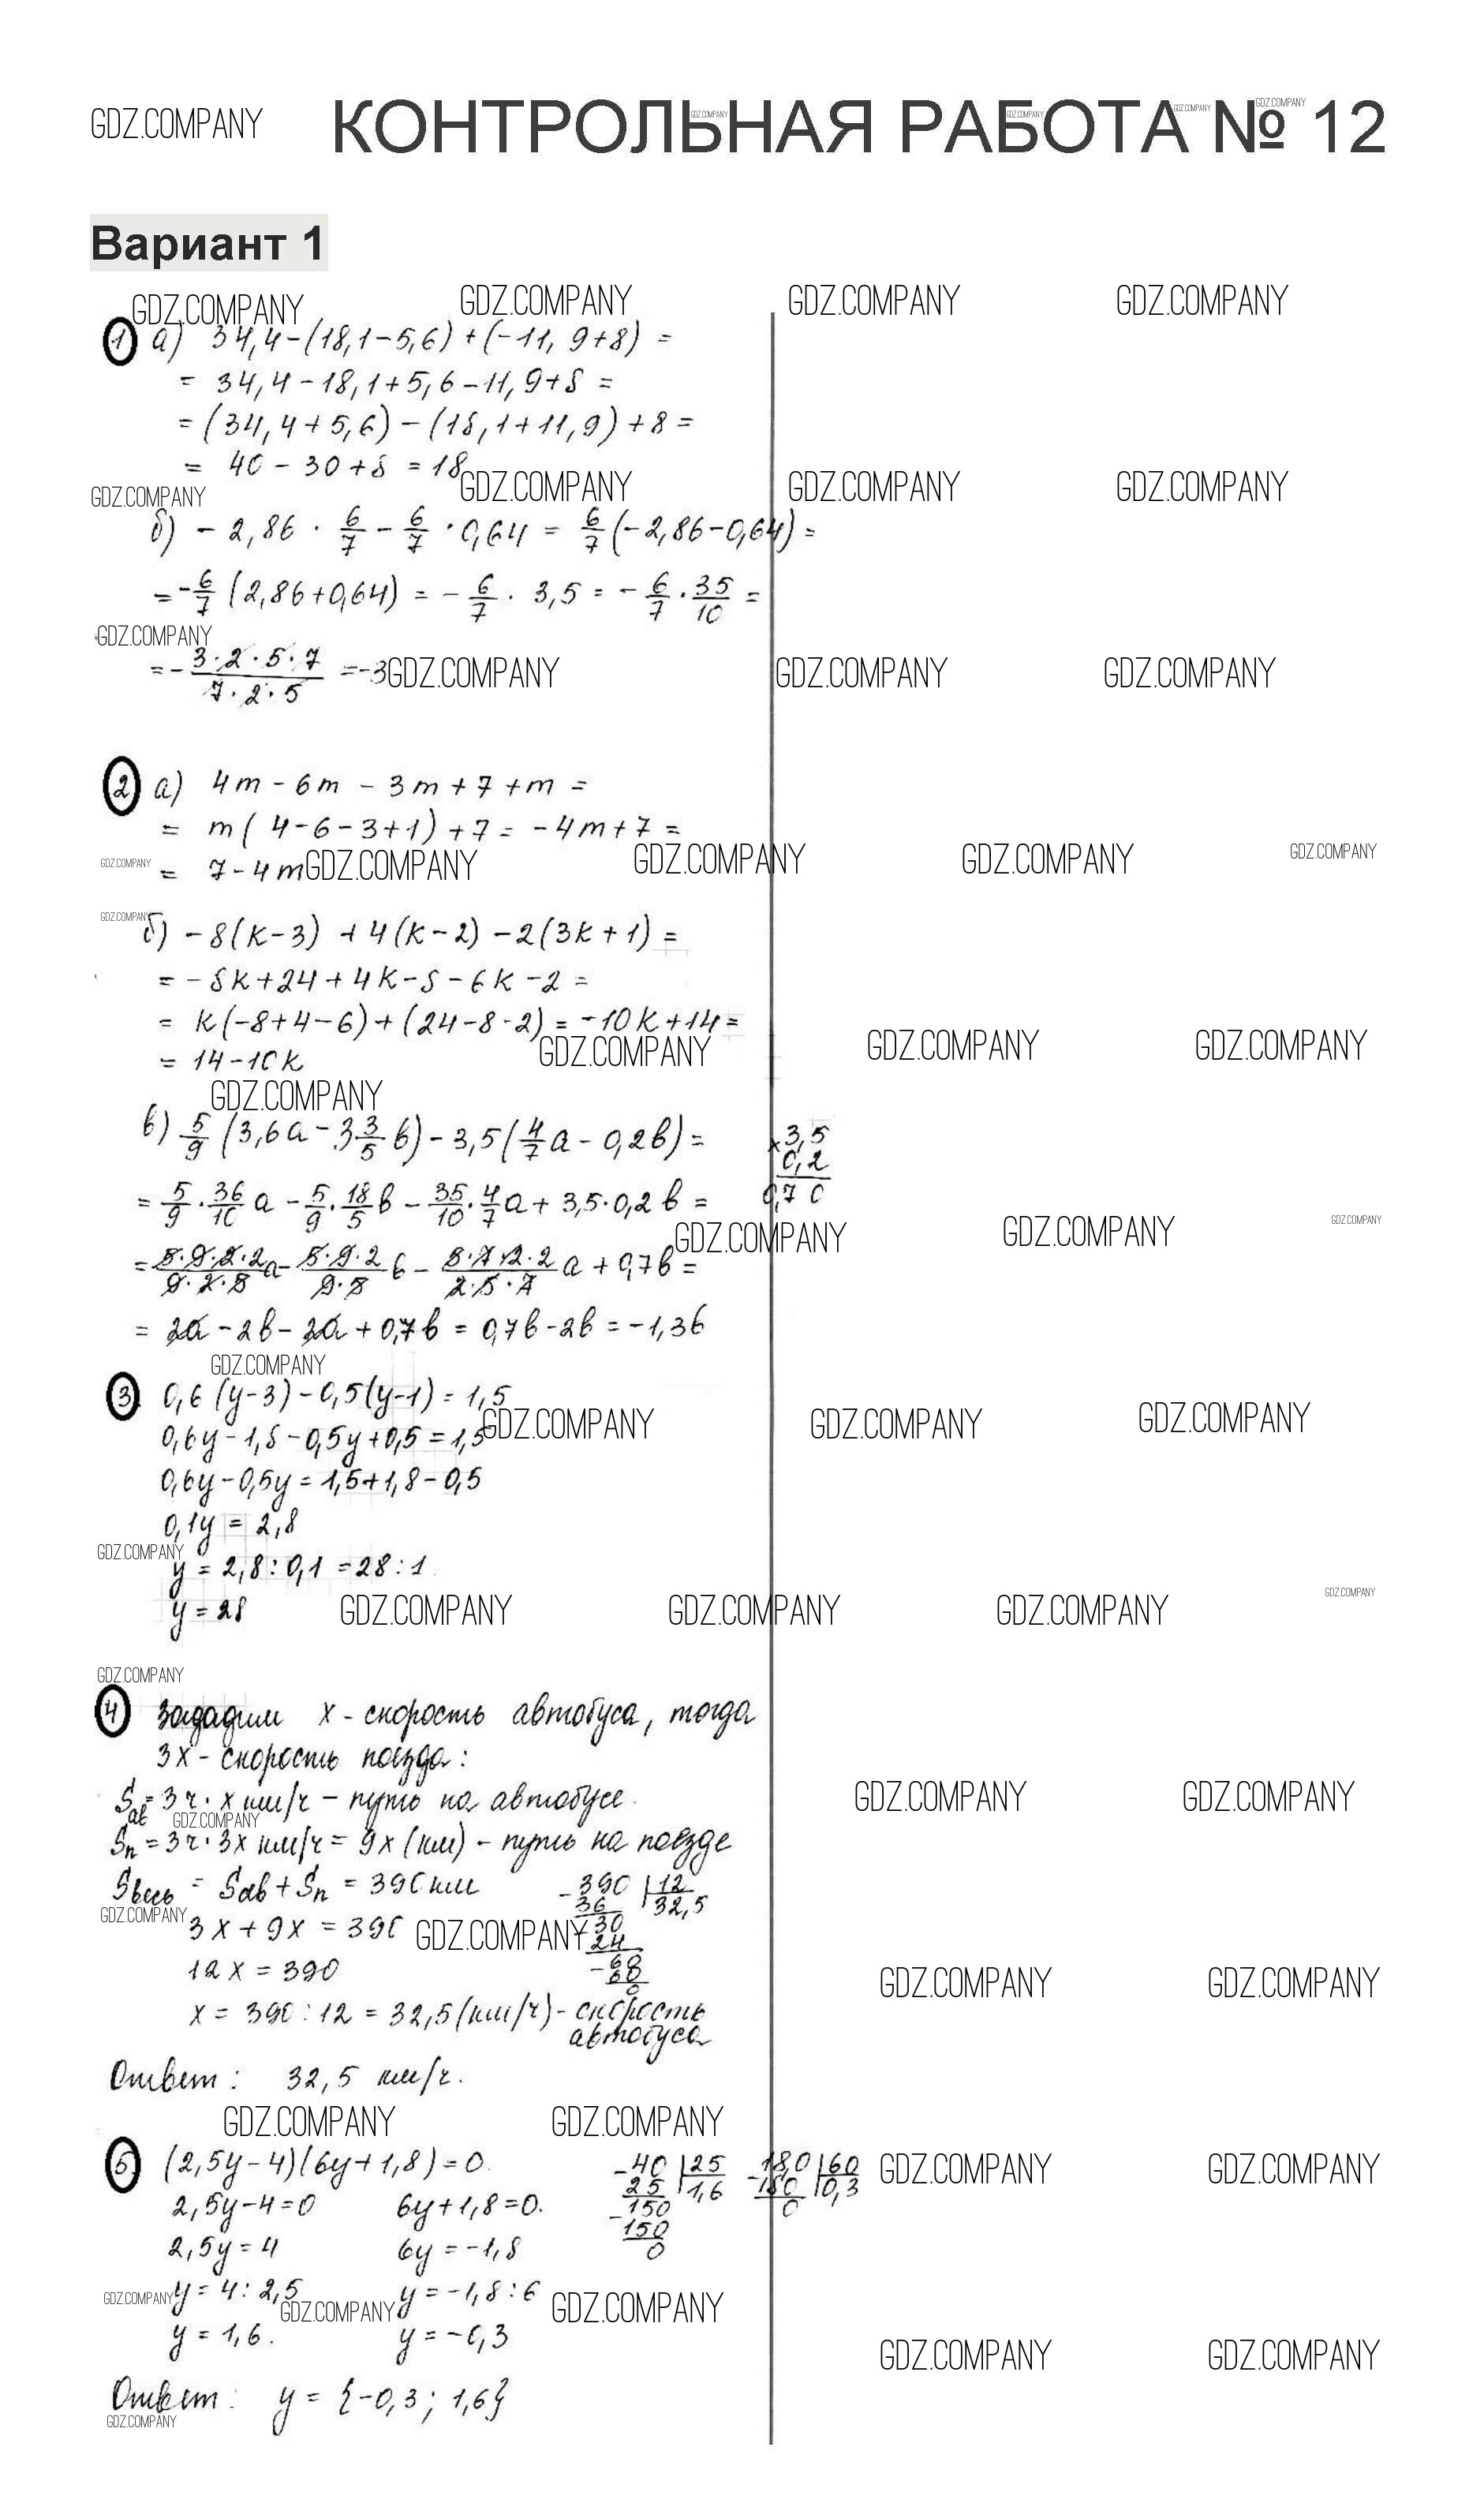 GDZ.COMPANY
КОНТРОЛЬНАЯ РАБОТА № 12
GDZ.COMPANY GDZ.COMPANY GDZ.COMPANY GDZ.COMPANY
Вариант 1
GDZ.COMPANY GDZ.COMPANY GDZ.COMPANY GDZ.COMPANY
1 а) 34,4-(18,1-5,6)+(-11,9+8) =
= 34,4-18,1+5,6-11,9+8 =
= (34,4+5,6)-(18,1+11,9)+8 =
= 40-30+8 = 18
GDZ.COMPANY GDZ.COMPANY GDZ.COMPANY GDZ.COMPANY
б) -2,86 · 6/7 - 6/7 · 0,64 = 6/7 (-2,86-0,64) =
= -6/7 (2,86+0,64) = -6/7 · 3,5 = -6/7 · 35/10 =
GDZ.COMPANY
= - 3·2·5·7 / 7·2·5 = -3
GDZ.COMPANY GDZ.COMPANY GDZ.COMPANY
2 а) 4m-6m-3m+7+m =
= m(4-6-3+1)+7 = -4m+7 =
= 7-4m
GDZ.COMPANY GDZ.COMPANY GDZ.COMPANY GDZ.COMPANY GDZ.COMPANY
GDZ.COMPANY
б) -8(k-3)+4(k-2)-2(3k+1) =
= -8k+24+4k-8-6k-2 =
= k(-8+4-6)+(24-8-2) = -10k+14 =
= 14-10k
GDZ.COMPANY GDZ.COMPANY GDZ.COMPANY
GDZ.COMPANY
в) 5/9 (3,6a - 3 3/5 b) - 3,5(4/7 a - 0,2b) =
× 3,5
0,2
0,70
= 5/9 · 36/10 a - 5/9 · 18/5 b - 35/10 · 4/7 a + 3,5·0,2b =
GDZ.COMPANY GDZ.COMPANY GDZ.COMPANY
= 5·9·2·2 / 9·2·5 a - 5·9·2 / 9·5 b - 5·7·2·2 / 2·5·7 a + 0,7b =
= 2a-2b-2a+0,7b = 0,7b-2b = -1,3b
GDZ.COMPANY
3 0,6(y-3)-0,5(y-1) = 1,5
GDZ.COMPANY GDZ.COMPANY GDZ.COMPANY
0,6y-1,8-0,5y+0,5 = 1,5
0,6y-0,5y = 1,5+1,8-0,5
0,1y = 2,8
GDZ.COMPANY
y = 2,8:0,1 = 28:1
y = 28
GDZ.COMPANY GDZ.COMPANY GDZ.COMPANY GDZ.COMPANY
GDZ.COMPANY
4 Зададим x - скорость автобуса, тогда
3x - скорость поезда:
Sав = 3ч·x км/ч - путь на автобусе.
GDZ.COMPANY GDZ.COMPANY GDZ.COMPANY
Sп = 3ч·3x км/ч = 9x (км) - путь на поезде
Sвесь = Sав + Sп = 390 км
GDZ.COMPANY
3x+9x = 390
GDZ.COMPANY
12x = 390
-390 | 12
36 | 32,5
-30
24
-60
60
0
GDZ.COMPANY GDZ.COMPANY
x = 390:12 = 32,5 (км/ч) - скорость
автобуса
Ответ: 32,5 км/ч.
GDZ.COMPANY GDZ.COMPANY
5 (2,5y-4)(6y+1,8) = 0.
-40 | 25
25 | 1,6
-150
150
0
-18,0 | 60
180 | 0,3
0
GDZ.COMPANY GDZ.COMPANY
2,5y-4=0 6y+1,8=0.
2,5y=4 6y=-1,8
y=4:2,5 y=-1,8:6
GDZ.COMPANY GDZ.COMPANY GDZ.COMPANY
y=1,6. y=-0,3
GDZ.COMPANY GDZ.COMPANY
Ответ: y = {-0,3; 1,6}
GDZ.COMPANY